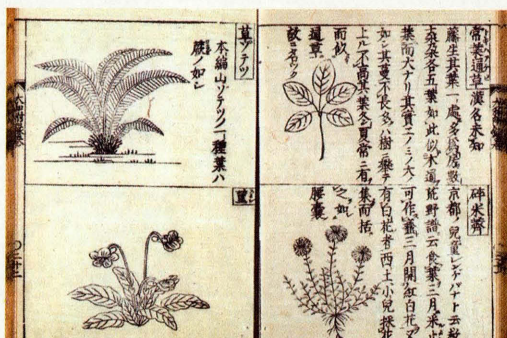 常葉通草 漢名未知
藤生其葉一處多
各五葉如此似木通
葉而大ナリ其實エノミノ大
如シ其蔓不長多ハ樹ニ乗テ
上ル不高其葉冬夏常ニ有
而似
通草
故ニ名ツク
砕米薺
京都ノ兒童レンゲバナト云救
荒野譜云食葉三月采止
可作虀三月開紅白花又
有白花者西土小兒採花
集而括
之如
草ソテツ
本編山ソテツノ一種葉ハ
蕨ノ如シ
菫